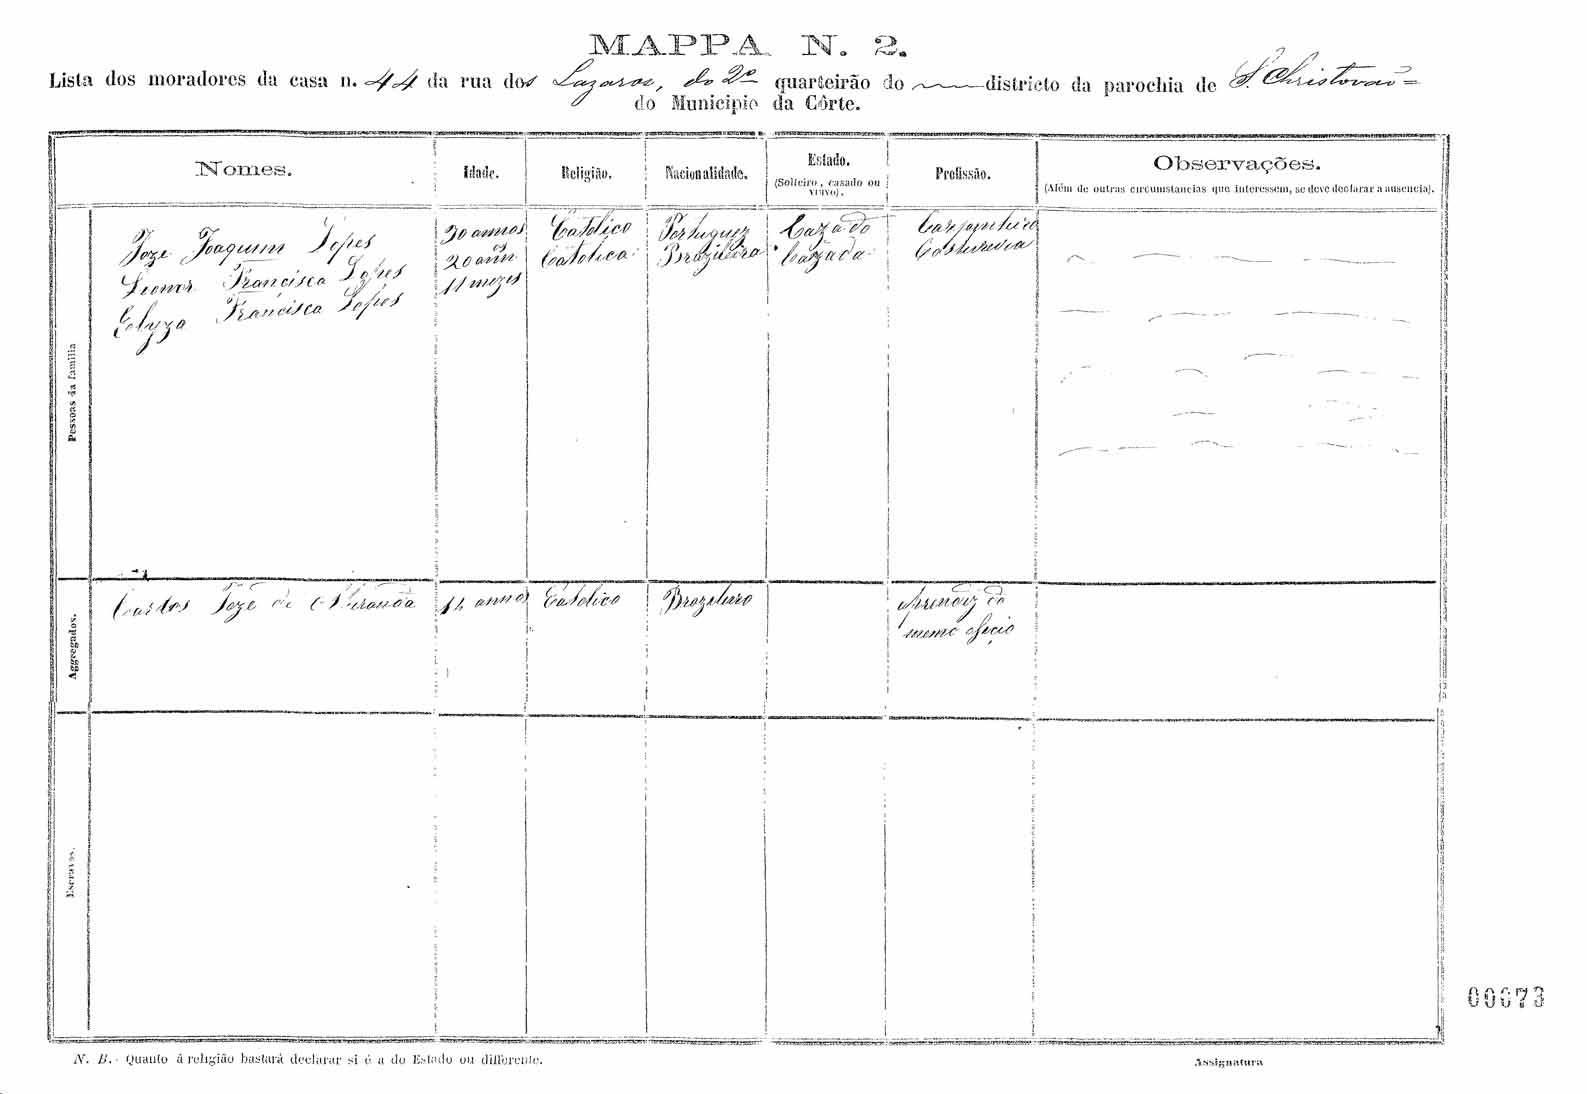 MAPPA N. 2.
Lista dos moradores da casa n. 44 da rua dos Lazaros, do 2º quarteirão do districto da parochia de S. Christovão
do Municipio da Côrte.
Nomes. Idade. Religião. Nacionalidade. Estado. (Solteiro, casado ou viuvo). Profissão. Observações. (Além de outras circumstancias que interessem, se deve declarar a ausencia).
Pessoas da familia
Joze Joaquim Lopes 30 annos Catolico Portuguez Cazado Carpinteiro
Leonor Francisca Lopes 20 ann Catolica Brazileira Cazada Costureira
Elyza Francisca Lopes 11 mezes
Aggregados.
Carlos Joze de Miranda annos Catolico Brazileiro Aprendiz do
memo oficio
Escravos.
00673
N. B. - Quanto á religião bastará declarar si é a do Estado ou differente.
Assignatura